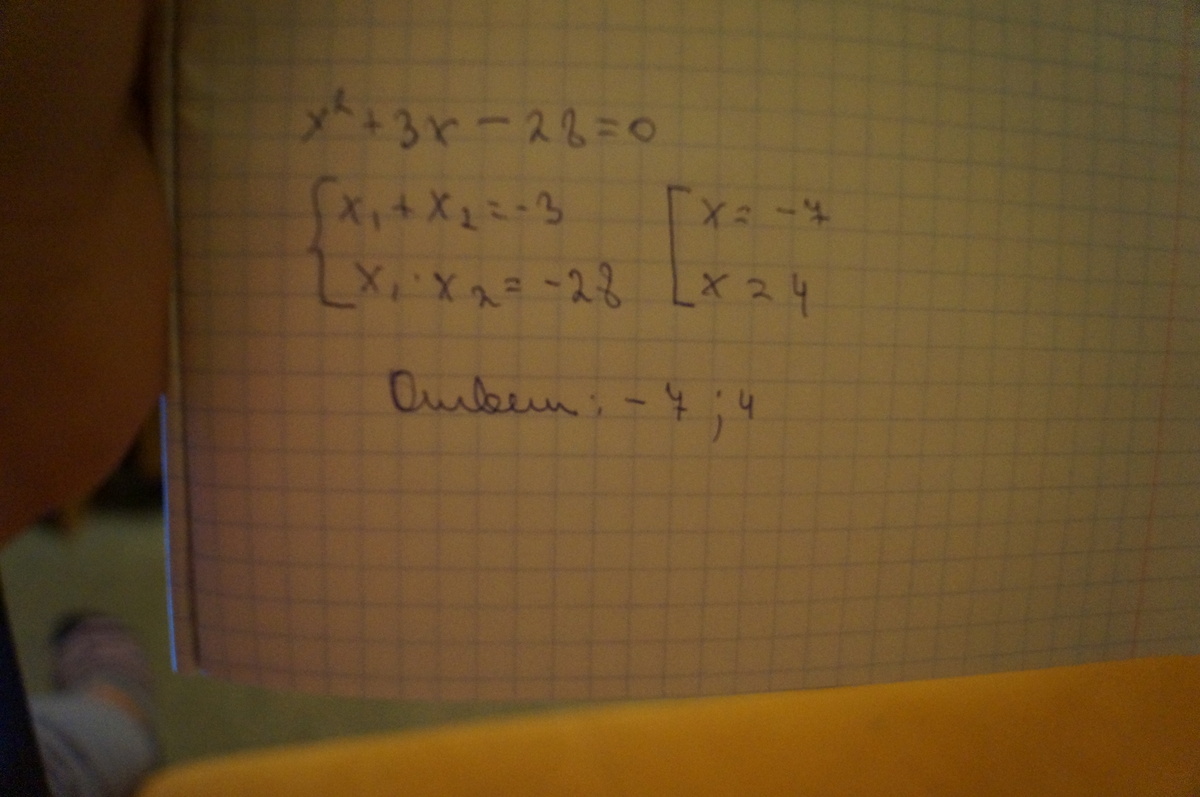 x² + 3x - 28 = 0
{ x₁ + x₂ = -3 [ x = -7
{ x₁ · x₂ = -28 [ x = 4
Ответ: -7 ; 4